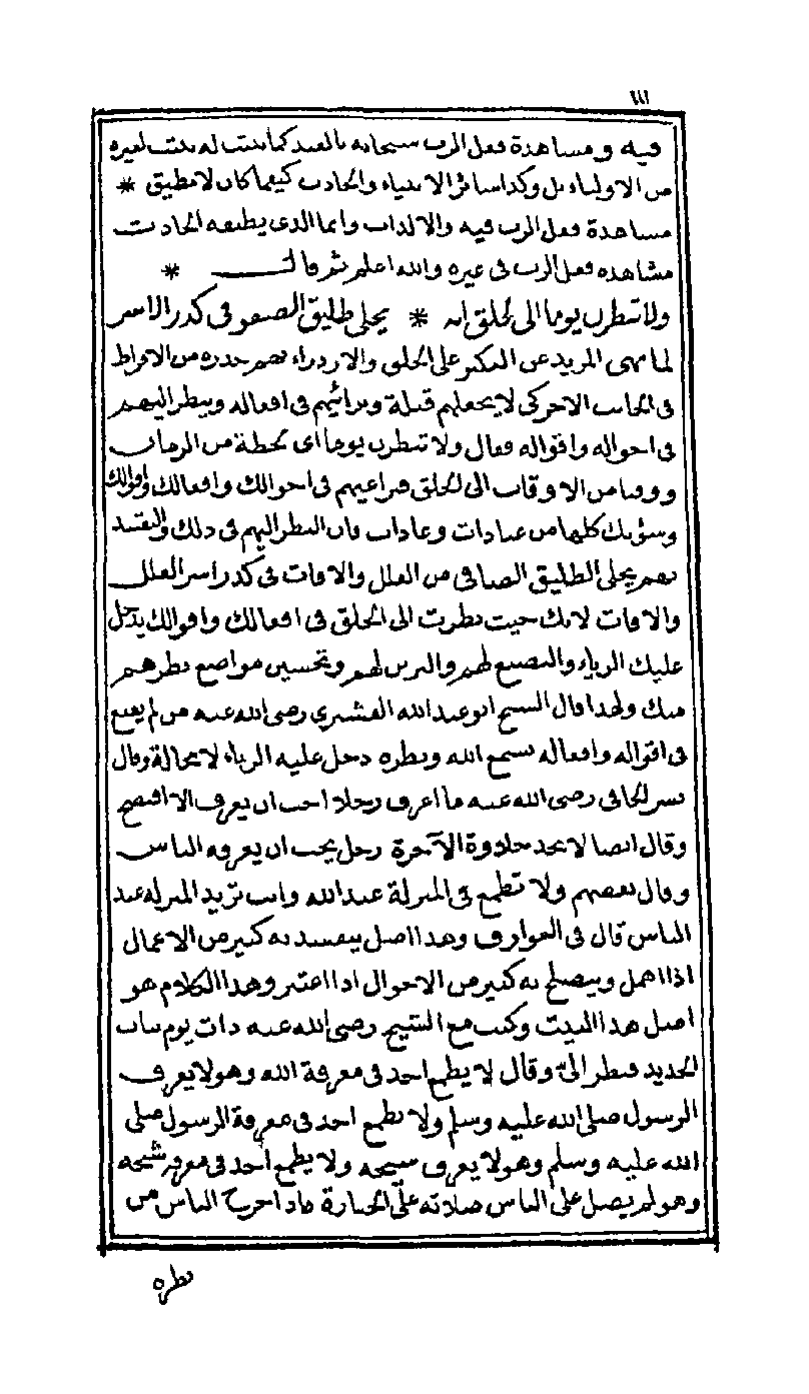 ١١١
فيه ومشاهدة فعل الرب سبحانه بالعبد كما يثبت له يثبت لغيره
من الاولياء بل وكذا سائر الانبياء والحادث كيفما كان لا يطيق *
مشاهدة فعل الرب فيه والا لذاب وانما الذى يطيقه الحادث
مشاهدة فعل الرب فى غيره والله اعلم ثم قال *
ولا تنظرن يوما الى الخلق انه * يخلى طليق الصفو فى كدر الاسر
لما نهى المريد عن التكبر على الخلق والازدراء بهم حذره من الافراط
فى الجانب الآخر كى لا يجعلهم قبلة ويرائيهم فى افعاله وينظر اليهم
فى احواله واقواله فقال ولا تنظرن يوما اى لحظة من الزمان
ووقتا من الاوقات الى الخلق فتراعيهم فى احوالك وافعالك واقوالك
وسؤنك كلها من عبادات وعادات فان النظر اليهم فى ذلك والتقيد
بهم يخلى الطليق الصافى من العلل والافات فى كدر اسر العلل
والافات لانك حيث نظرت الى الخلق فى افعالك واقوالك يدخل
عليك الرياء والتصنع لهم والتزين لهم وتحسين مواضع نظرهم
منك ولهذا قال الشيخ ابو عبد الله القشيرى رضى الله عنه من لم يقنع
فى اقواله وافعاله بسمع الله ونظره دخل عليه الرياء لا محالة وقال
بشر الحافى رضى الله عنه ما اعرف رجلا احب ان يعرف الا افتضح
وقال ايضا لا يجد حلاوة الآخرة رجل يحب ان يعرفه الناس
وقال بعضهم ولا تطمع فى المنزلة عند الله وانت تريد المنزلة عند
الناس قال فى العوارف وهذا اصل ينفسد به كثير من الاعمال
اذا اهمل وينصلح به كثير من الاحوال اذا اعتبر وهذا الكلام هو
اصل هذا البيت وكنت مع الشيخ رضى الله عنه ذات يوم بباب
الحديد فنظر الىّ وقال لا يطمع احد فى معرفة الله وهو لا يعرف
الرسول صلى الله عليه وسلم ولا يطمع احد فى معرفة الرسول صلى
الله عليه وسلم وهو لا يعرف شيخه ولا يطمع احد فى معرفة شيخه
وهو لم يصل على الناس صلاته على الجنازة فاذا خرج الناس من
نظره